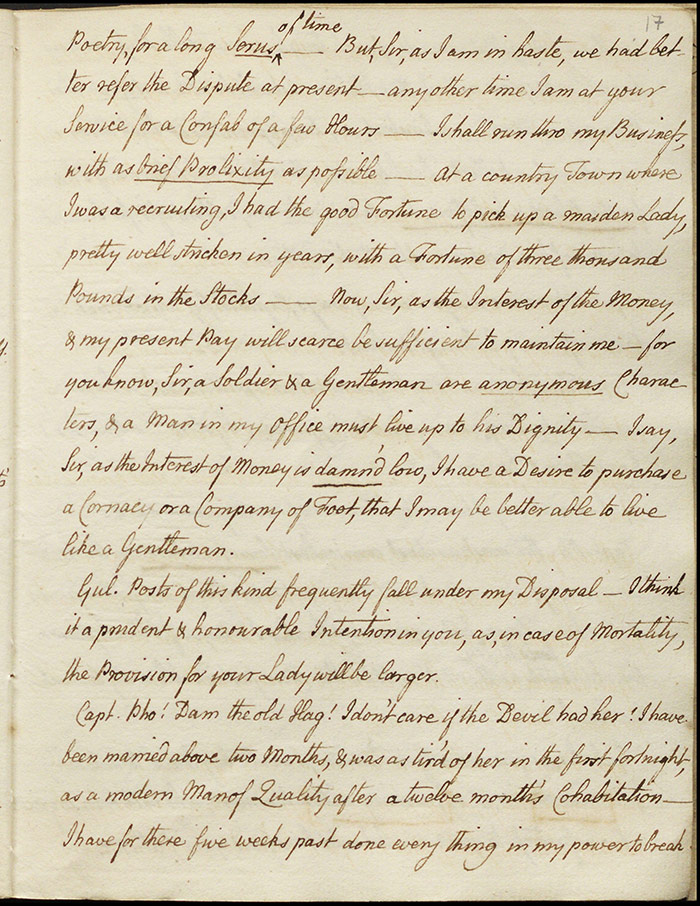 17
of time
Poetry, for a long Serus ^ — But, Sir, as I am in haste, we had bet-
ter refer the Dispute at present — any other time I am at your
Service for a Confab of a few Hours — I shall run thro my Business,
with as brief Prolixity as possible — At a country Town where
I was a recruiting, I had the good Fortune to pick up a maiden Lady,
pretty well stricken in years, with a Fortune of three thousand
Pounds in the Stocks — Now, Sir, as the Interest of the Money,
& my present Pay will scarce be sufficient to maintain me — for
you know, Sir, a Soldier & a Gentleman are anonymous Charac
ters, & a Man in my Office must live up to his Dignity — I say,
Sir, as the Interest of Money is damn'd low, I have a Desire to purchase
a Cornacy or a Company of Foot, that I may be better able to live
like a Gentleman.
Gul. Posts of this kind frequently fall under my Disposal — I think
it a prudent & honourable Intention in you, as, in case of Mortality,
the Provision for your Lady will be larger.
Capt. Pho! Dam the old Hag! I don't care if the Devil had her! I have
been married above two Months, & was as tir'd of her in the first fortnight,
as a modern Man of Quality after a twelve month's Cohabitation —
I have for these five weeks past done every thing in my power to break